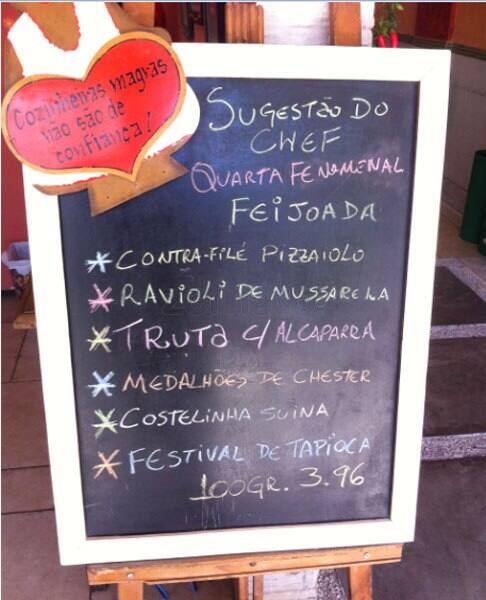 Cozinheiras magras
não são de
confiança!
SUGESTÃO DO
CHEF
QUARTA FENOMENAL
FEIJOADA
* CONTRA-FILÉ PIZZAIOLO
* RAVIOLI DE MUSSARELA
* TRUTA C/ ALCAPARRA
* MEDALHÕES DE CHESTER
* COSTELINHA SUINA
* FESTIVAL DE TAPIOCA
100GR. 3.96